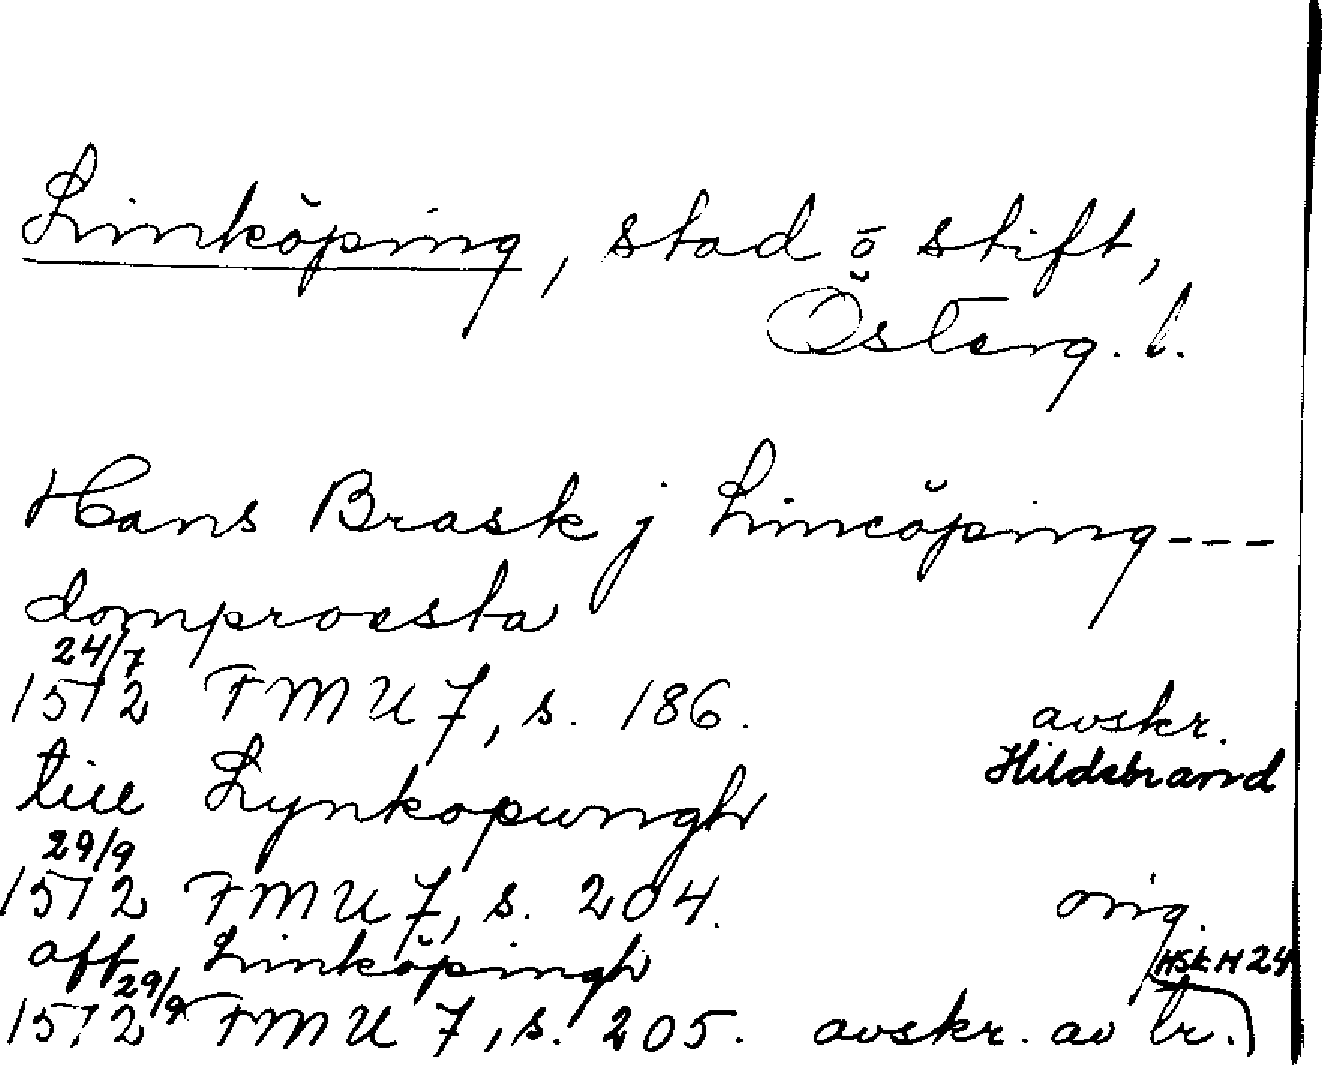 Linköping, stad o stift,
Österg. l.
Hans Brask j Lincöping---
domproesta
24/7
1512 FMU 7, s. 186. avskr.
Hildebrand
till Lynkopungh
29/9
1512 FMU 7, s. 204. orig.
aff Linköpingh
HSK H 24
29/9
1512 FMU 7, s. 205. avskr. av br.)